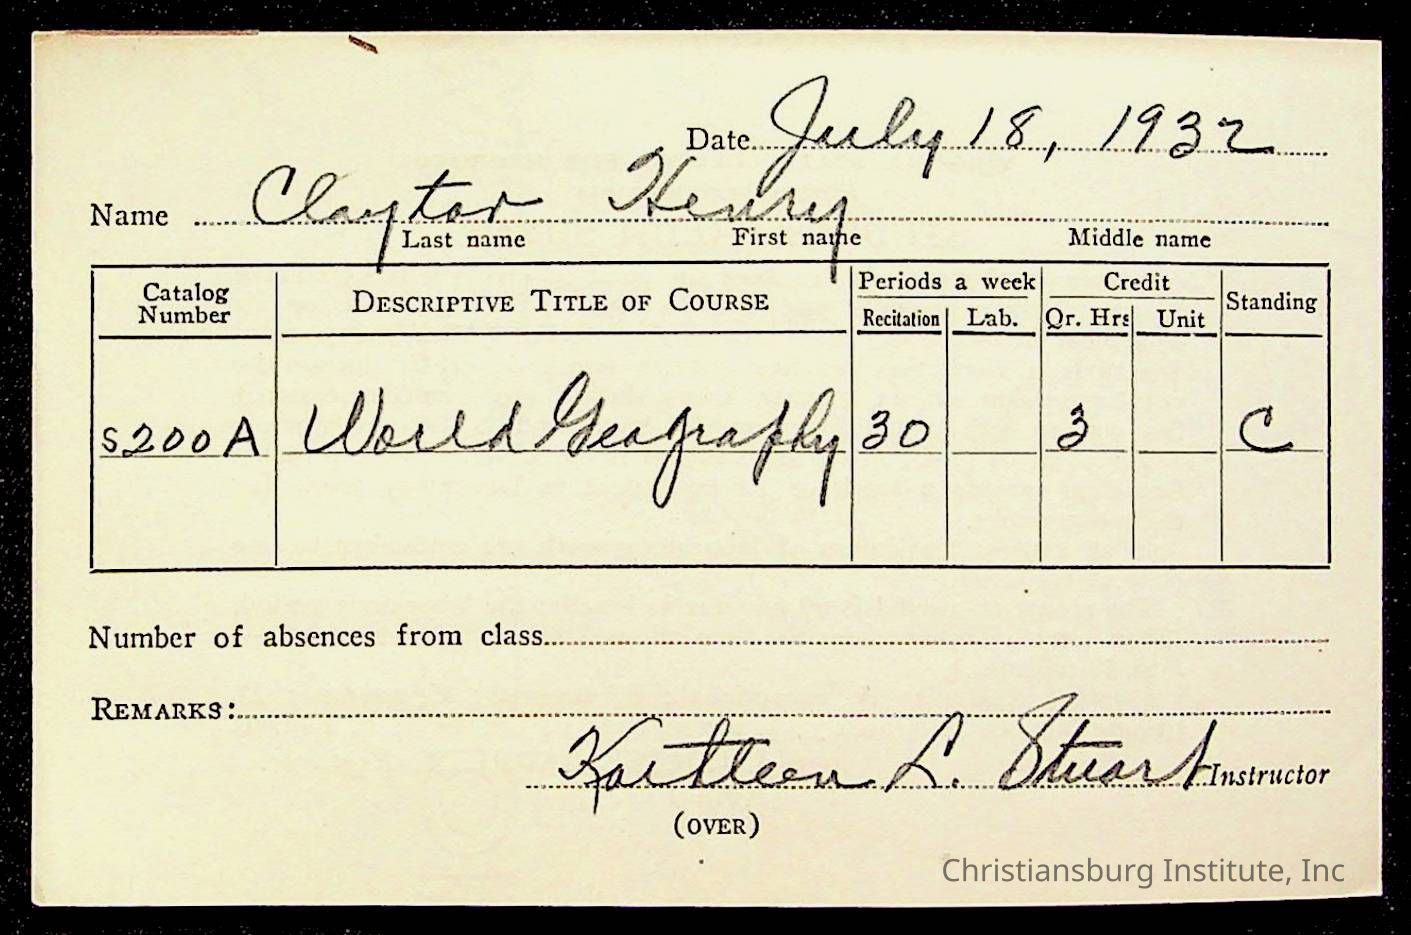 Date July 18, 1932
Name Claytor Henry
Last name First name Middle name
Catalog Number DESCRIPTIVE TITLE OF COURSE Periods a week Credit Standing
Recitation Lab. Qr. Hrs Unit
S200A World Geography 30 3 C
Number of absences from class
REMARKS:
Kathleen L. Stuart Instructor
(OVER)
Christiansburg Institute, Inc